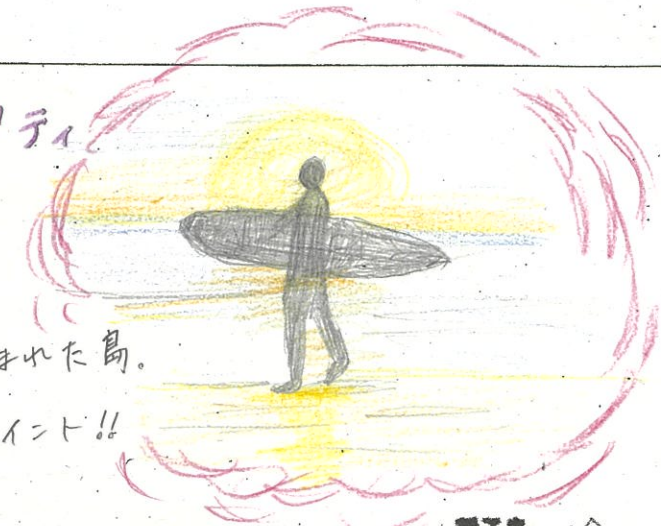 ティ
まれた島。
イント!!